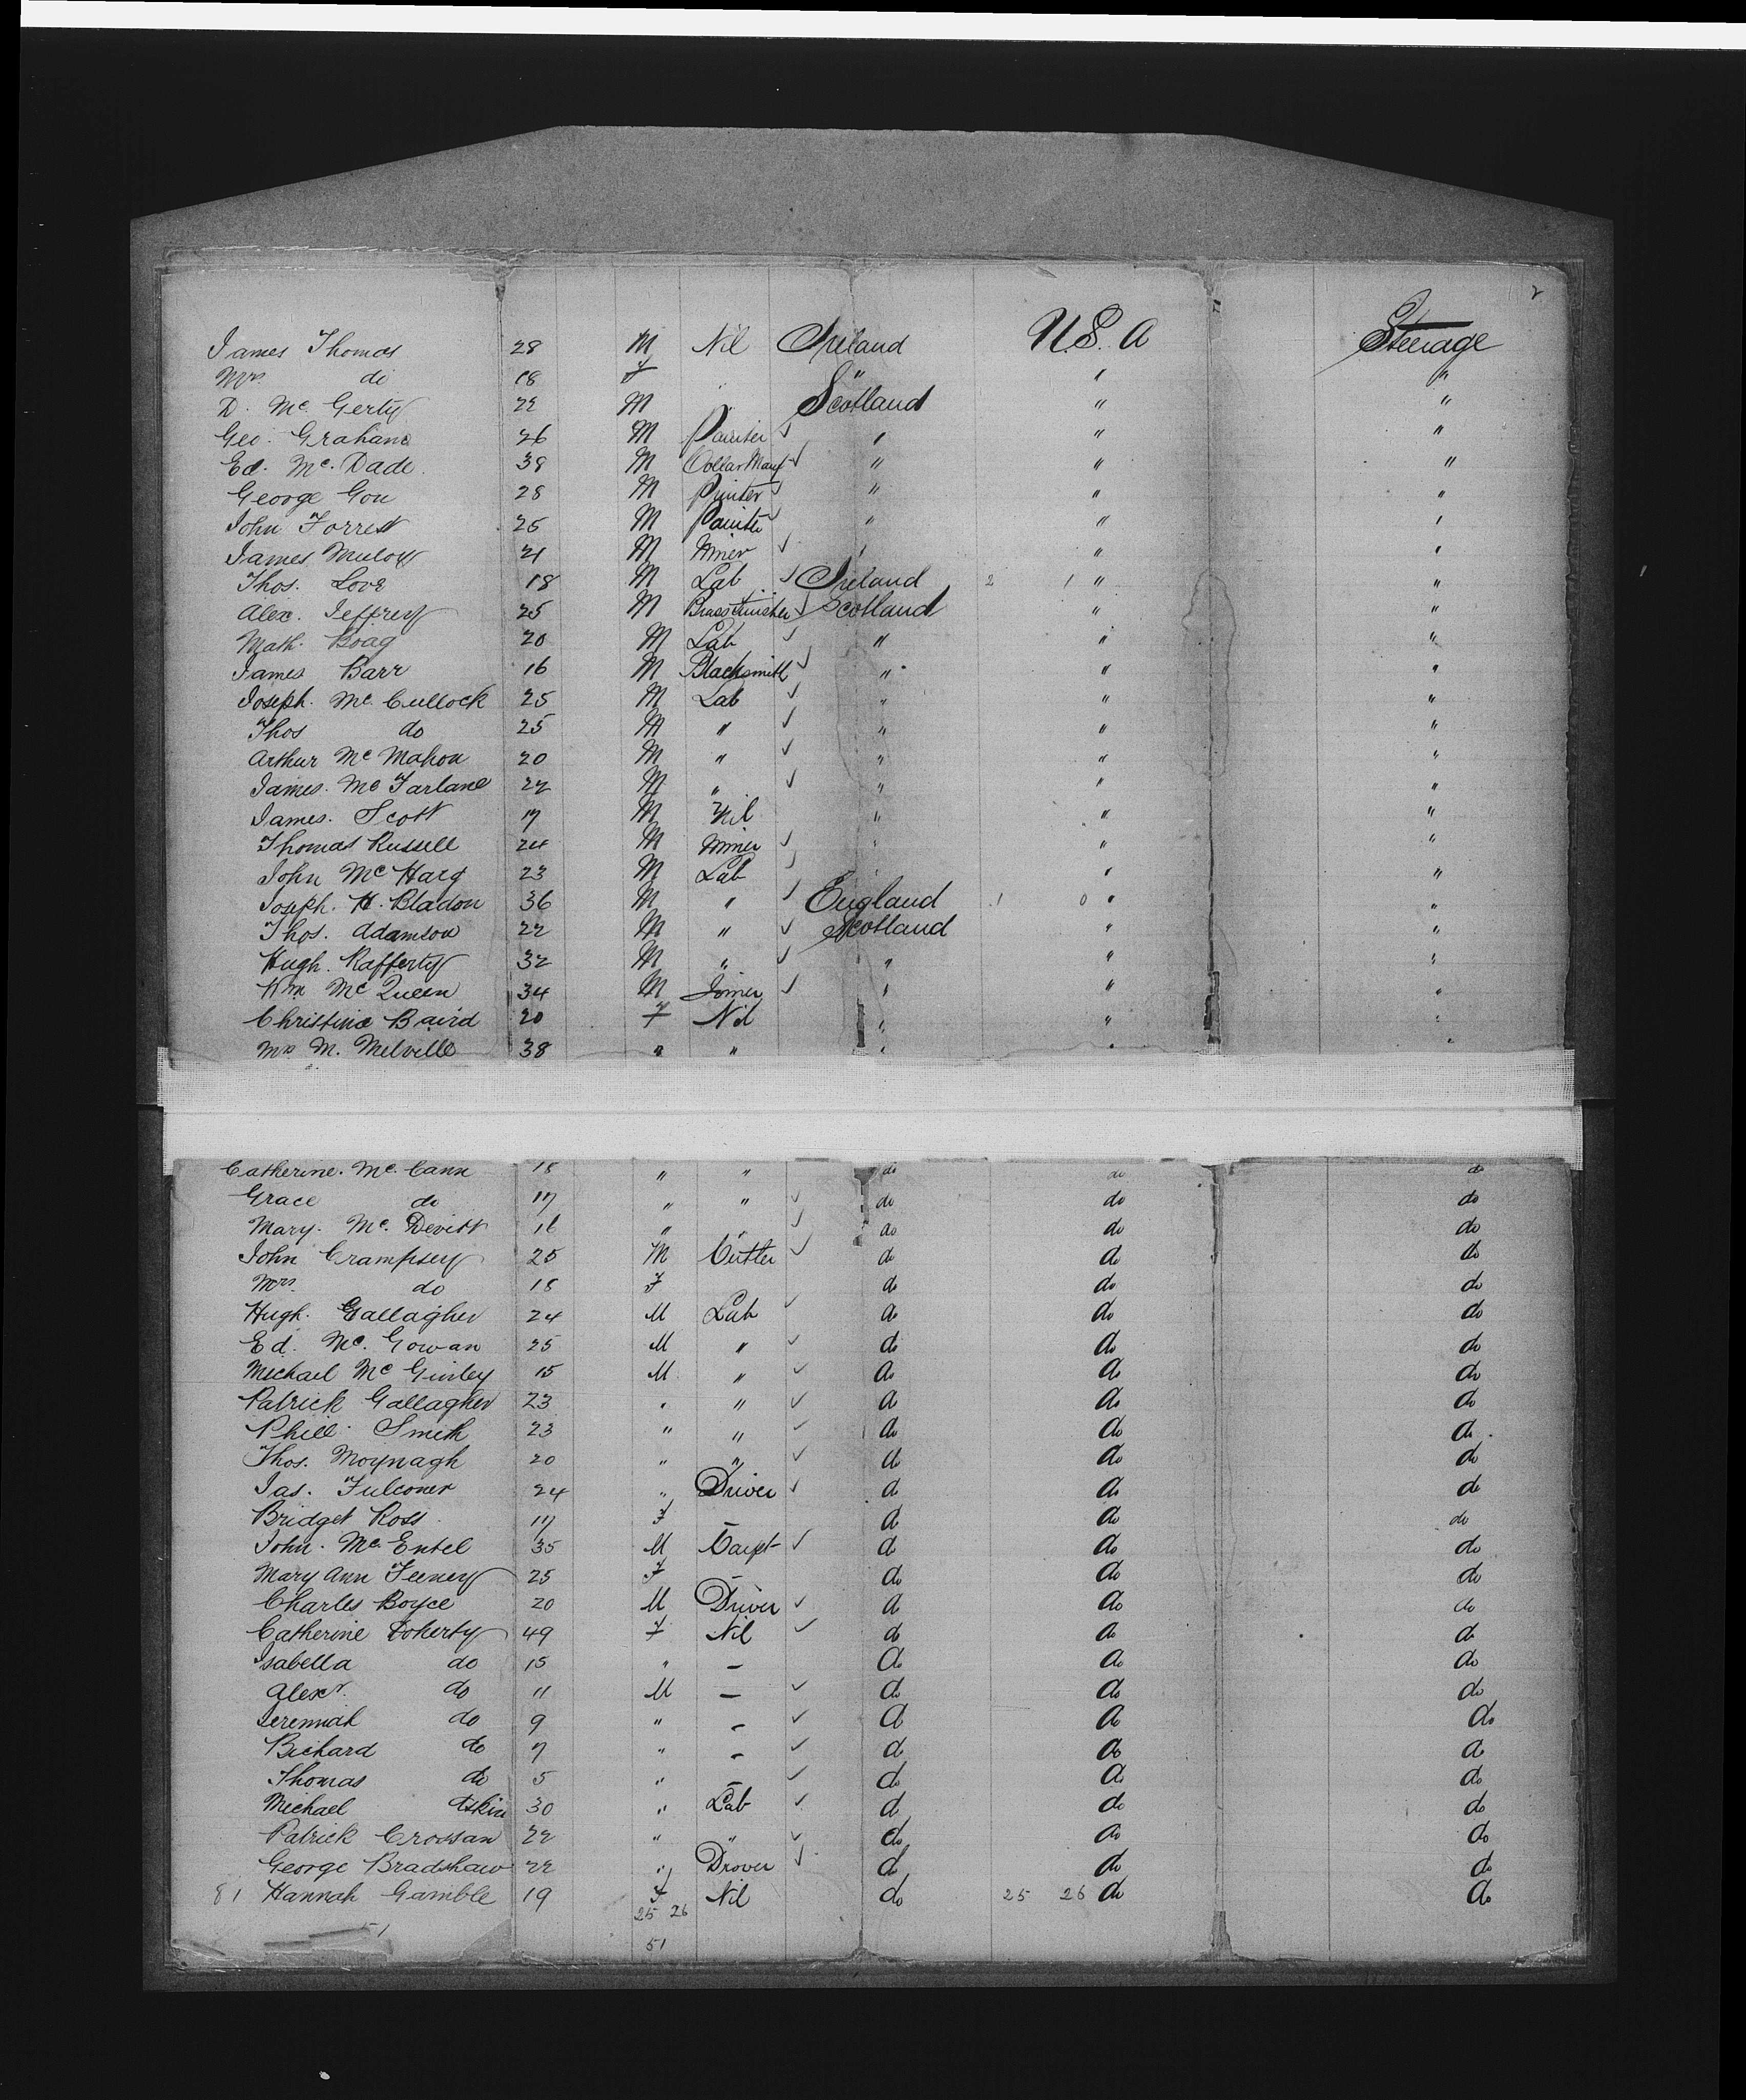 2
James Thomas 28 M Nil Ireland U.S.A Steerage
Mrs. do 18 F " " "
D. Mc Gerty 22 M Scotland " "
Geo. Graham 26 M Painter ✓ " " "
Ed. Mc. Dade 38 M Collar Manf ✓ " " "
George Gou 28 M Printer ✓ " " "
John Forrest 25 M Painter ✓ " " "
James 21 M Miner ✓ " " "
Thos. Love 18 M Lab ✓ Ireland 2 1 " "
Alex. Jeffrey 25 M Brass Finisher ✓ Scotland " "
Math. Boag 20 M Lab ✓ " " "
James Barr 16 M Blacksmith ✓ " " "
Joseph. Mc. Cullock 25 M Lab ✓ " " "
Thos do 25 M " ✓ " " "
Arthur Mc Mahon 20 M " ✓ " " "
James. Mc Farlane 22 M " ✓ " " "
James. Scott 17 M Nil " " "
Thomas Russell 24 M Miner ✓ " " "
John Mc Harg 23 M Lab ✓ " "
Joseph. H. Bladon 36 M " ✓ England 1 0 " "
Thos. Adamson 22 M " ✓ Scotland " "
Hugh. Rafferty 32 M " ✓ " " "
Wm Mc Queen 34 M Joiner ✓ " " "
Christina Baird 20 F Nil " " "
Mrs M. Melville 38 " " " " "
Catherine. Mc. Cann 18 " " do do do
Grace do 17 " " ✓ do do do
Mary. Mc. Devitt 16 " " ✓ do do do
John Crampsey 25 M Cutler ✓ do do do
Mrs. do 18 F do do do
Hugh. Gallagher 24 M Lab ✓ do do do
Ed. Mc. Gowan 25 M " ✓ do do do
Michael Mc Ginley 15 M " ✓ do do do
Patrick Gallagher 23 " " ✓ do do do
Phill. Smith 23 " " ✓ do do do
Thos. Moynagh 20 " " ✓ do do do
Jas. Fulconer 24 " Driver ✓ do do do
Bridget Ross 17 F – do do do
John. Mc. Entel 35 M Carpt ✓ do do do
Mary Ann Feeney 25 F – do do do
Charles Boyce 20 M Driver ✓ do do do
Catherine Doherty 49 F Nil ✓ do do do
Isabella do 15 " – do do do
Alexr. do 11 M – ✓ do do do
Jeremiah do 9 " – ✓ do do do
Richard do 7 " – ✓ do do do
Thomas do 5 " – ✓ do do do
Michael 30 " Lab ✓ do do do
Patrick Crossan 22 " " ✓ do do do
George Bradshaw 22 " Drover ✓ do do do
81 Hannah Gamble 19 F Nil do 25 26 do do
25 26
51
51